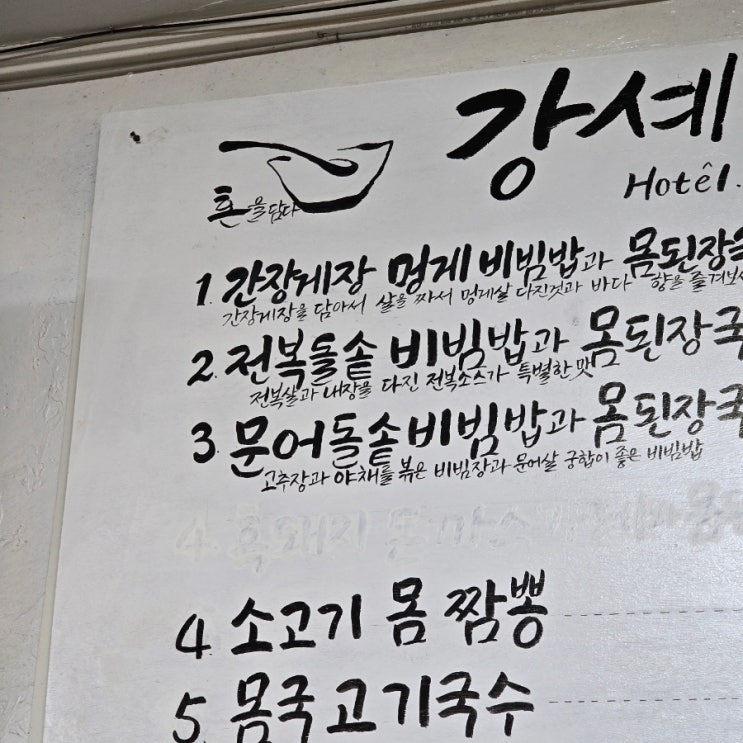 강셰
Hotêl.
혼을담다
1. 간장게장 멍게 비빔밥과 몸된장
간장게장을 담아서 살을 짜서 멍게살 다진것과 바다 향을 즐겨보
2. 전복돌솥 비빔밥과 몸된장국
전복살과 내장을 다진 전복소스가 특별한 맛
3. 문어돌솥비빔밥과 몸된장국
고추장과 야채를 볶은 비빔장과 문어살 궁합이 좋은 비빔밥
4 소고기 몸 짬뽕
5. 몸국고기국수